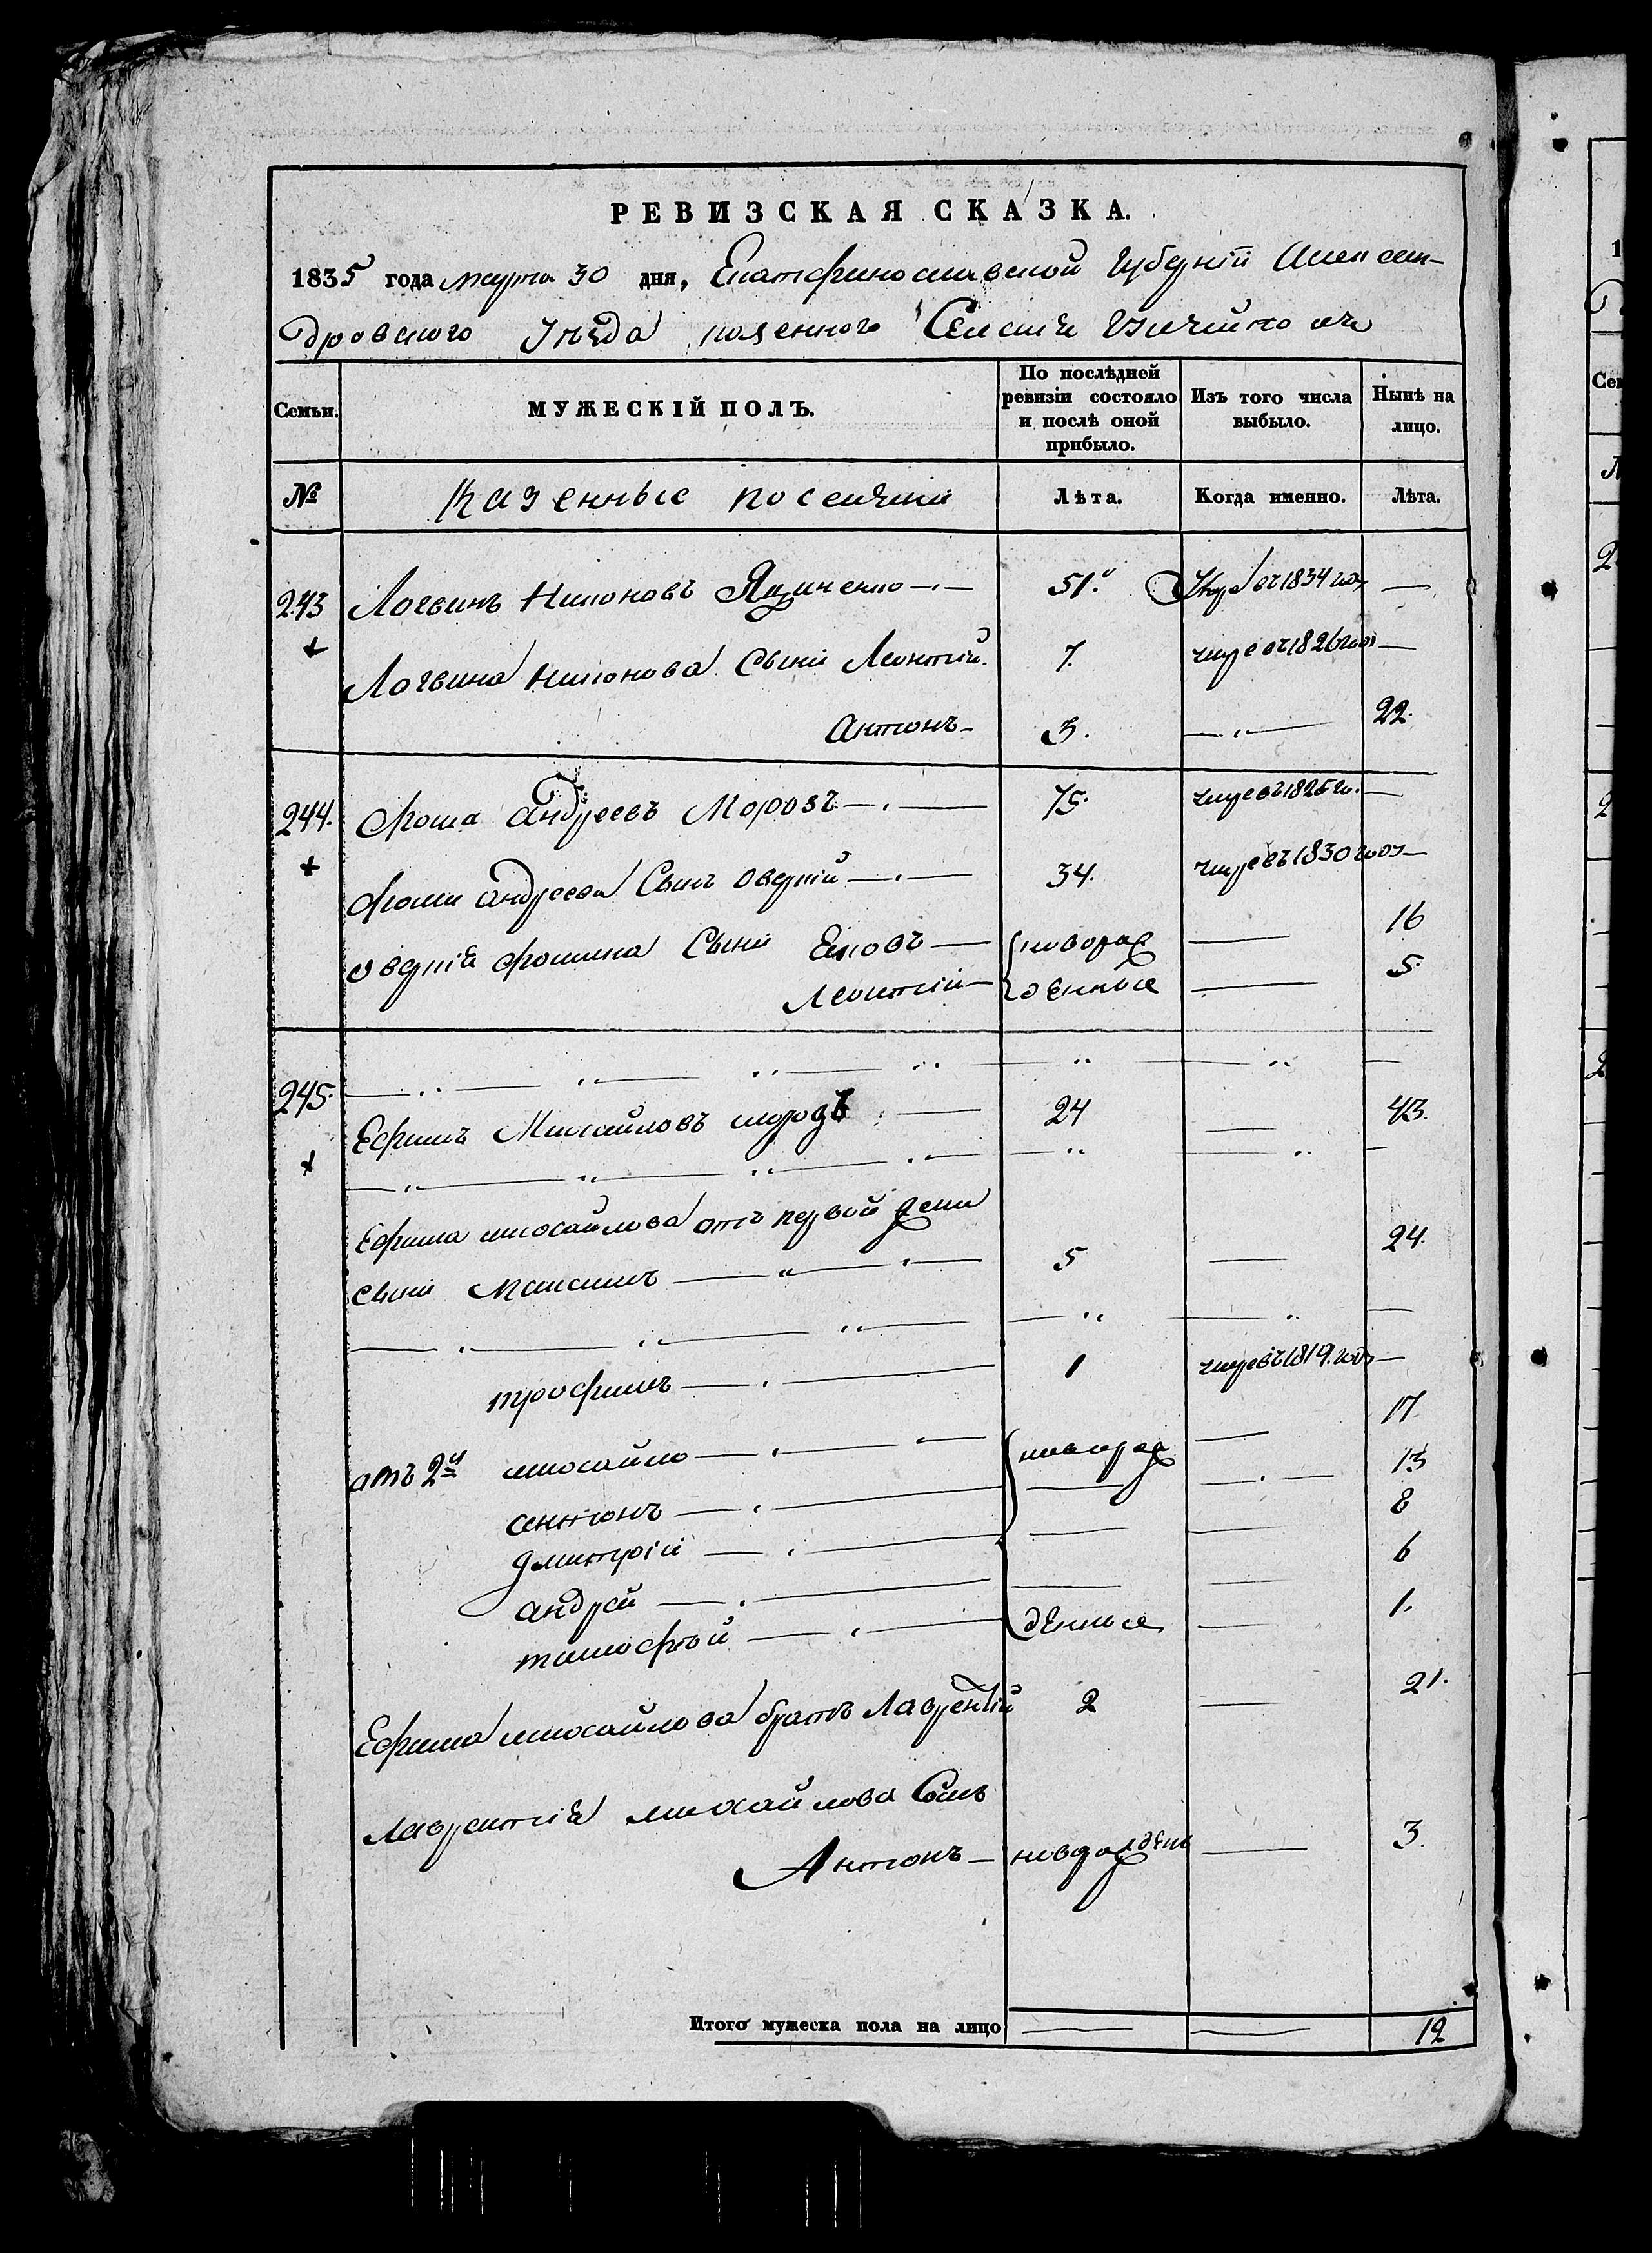 РЕВИЗСКАЯ СКАЗКА.
1835 года марта 30 дня, Екатеринославской Губерніи Алексан-
дровского Уѣзда казенного Селенія
Семьи. МУЖЕСКІЙ ПОЛЪ. По послѣдней ревизіи состояло и послѣ оной прибыло. Изъ того числа выбыло. Нынѣ на лицо.
№ Казенные поселяни Лѣта. Когда именно. Лѣта.
243 Логвинъ Никоновъ 51. въ 1834 году —
Логвина Никонова Сыни Леонтій. 7. умре въ 1826 году —
Антонъ 3. — 22.
244. Фома Андреевъ Морозъ 75. умре въ 1825 го. —
Фоми андреева Сынъ Овдѣй 34. умре въ 1830 году —
Фомина Сыни Яковъ новорож — 16
Леонтій денные — 5.
245.
Ефимъ Михайловъ морозъ 24 — 43.
Ефима михайлова отъ первой жени
сыни Максимъ 5 — 24.
трофимъ 1 умре въ 1819. году —
отъ 2й михайло новорож — 17.
антонъ — — 13
дмитрій — — 8
андрей — — 6
тимофѣй денные — 1.
Ефима михайлова братъ Лаврентій 2 — 21.
Лаврентія михайлова Сынъ
Антонъ новорожден — 3.
Итого мужеска пола на лицо — — 12